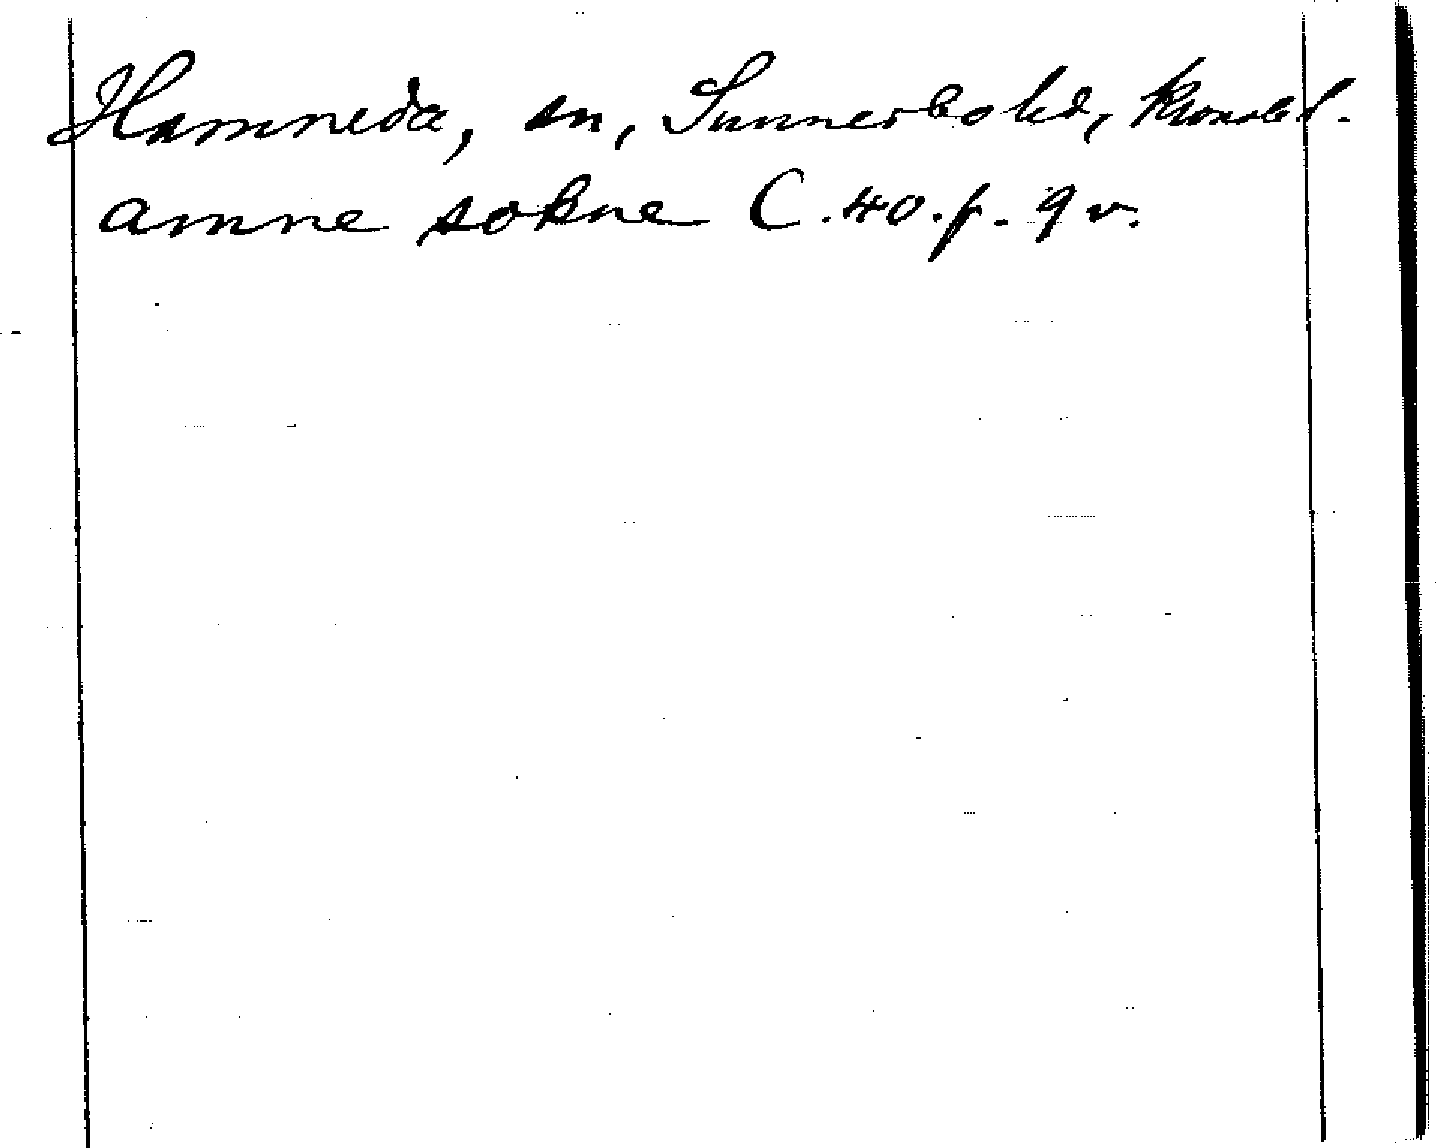 Hamneda, sn, Sunnerbo hd, Kronobl.
amne sokne C.40.f. 9 v.